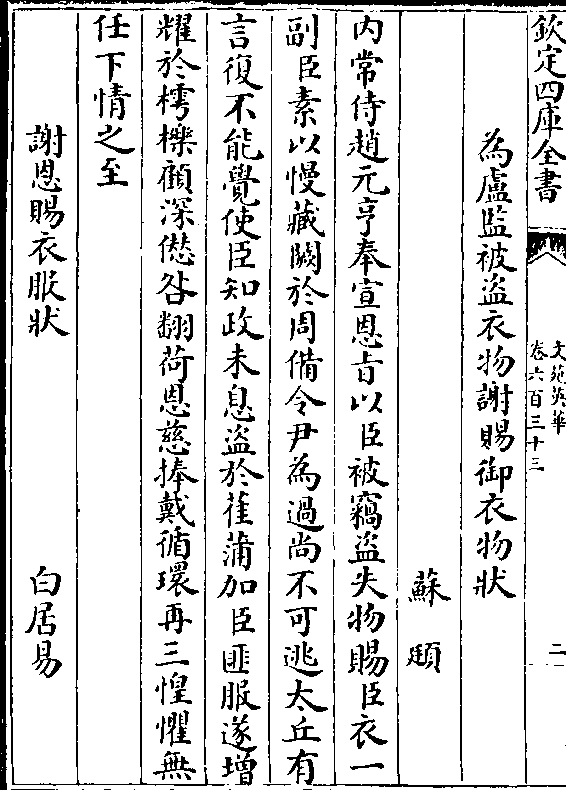 欽定四庫全書
文苑英華
卷六百三十三
二
為盧監被盗衣物謝賜御衣物狀
蘇頲
内常侍趙元亨奉宣恩旨以臣被竊盗失物賜臣衣一
副臣素以慢藏闕於周備令尹為過尚不可逃太丘有
言復不能覺使臣知政未息盗於萑蒲加臣匪服遂增
耀於樗櫟顧深僁咎翻荷恩慈捧戴循環再三惶懼無
任下情之至
謝恩賜衣服狀
白居易